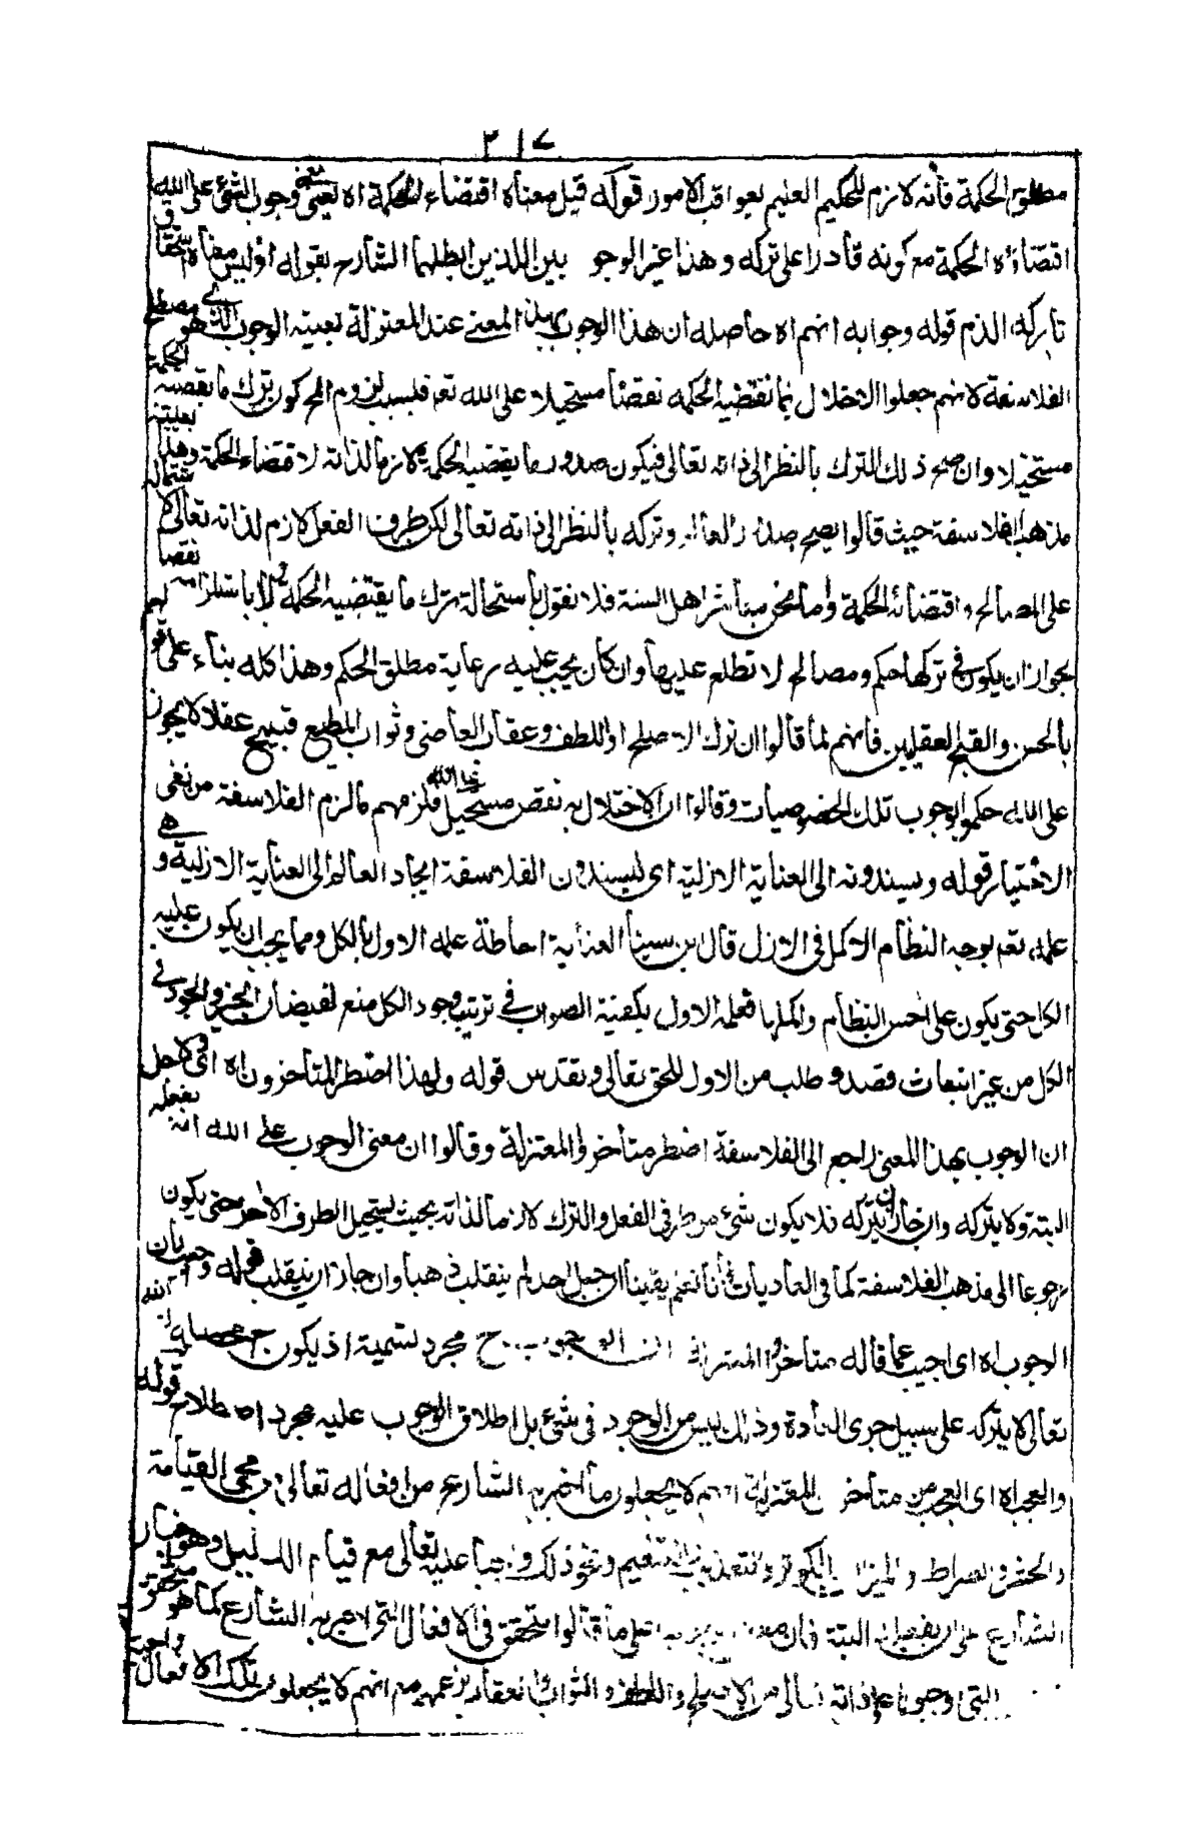 ٣١٧
مطلق الحكمة فأنه لازم للحكيم العليم بعواقب الامور قوله قيل معناه اقتضاء الحكمة اه يعني معنى وجوب الشئ على الله
اقتضاء الحكمة مع كونه قادرا على تركه وهذا غير الوجو بين اللذين ابطلهما الشارح بقوله اذ ليس معناه استحقاق
تاركه الذم قوله وجوابه انهم اه حاصله ان هذا الوجوب بهذا المعنى عند المعتزلة بعينه الوجوب الذي هو مصطلح
الفلاسفة لانهم جعلوا الاخلال بما تقتضيه الحكمة نقصا مستحيلا على الله تعم فلسبب لزوم المح كون ترك ما يقتضيه الحكمة
مستحيلا وان صح ذلك الترك بالنظر الى ذاته تعالى فيكون صدور ما يقتضيه الحكمة لازما لذاته لاقتضاء الحكمة وهذا بعينه
مذهب الفلاسفة حيث قالوا يصح صدور العالم وتركه بالنظر الى ذاته تعالى لكن طرف الفعل لازم لذاته تعالى لاشتماله
على المصالح واقتضائه الحكمة وأما نحن معاشر اهل السنة فلا نقول باستحالة ترك ما يقتضيه الحكمة ولا باستلزامه نقصا
بجواز ان يكون في تركها حكم ومصالح لا نطلع عليها وان كان يجب عليه رعاية مطلق الحكم وهذا كله بناء على قولهم
بالحسن والقبح العقليين فأنهم لما قالوا ان ترك الاصلح او اللطف وعقاب العاصي وثواب المطيع قبيح عقلا لا يجوز
على الله حكموا بوجوب تلك الخصوصيات وقالوا ان الاخلال به نقص مستحيل على الله فلزمهم ما لزم الفلاسفة من نفي
الاختيار قوله ويسندونه الى العناية الازلية اى يسندون الفلاسفة ايجاد العالم الى العناية الازلية وهي
علمه تعم بوجه النظام الاكمل في الازل قال ابن سينا العناية احاطة علمه الاول بالكل وبما يجب ان يكون عليه
الكل حتى يكون على احسن النظام واكملها فعلمه الاول بكيفية الصواب في ترتيب وجود الكل منبع لفيضان الخير والجود في
الكل من غير انبعاث قصد وطلب من الاول للحق تعالى وتقدس قوله ولهذا اضطر المتأخرون اه اى لاجل
ان الوجوب بهذا المعنى راجع الى الفلاسفة اضطر متأخروا المعتزلة وقالوا ان معنى الوجوب على الله انه يفعله
البتة ولا يتركه وان جاز ان يتركه فلا يكون شئ من طرفي الفعل والترك لازما لذاته بحيث يستحيل الطرف الاخر حتى يكون
رجوعا الى مذهب الفلاسفة كما في العاديات فأنا نعلم يقينا ان جبل احد لم ينقلب ذهبا وان جاز ان ينقلب قوله وجيب بان
الوجوب اه اى اجيب عما قاله متأخروا المعتزلة ان الوجوب ح مجرد تسمية اذ يكون ح حصله ان الله
تعالى لا يتركه على سبيل جرى العادة وذلك ليس من الوجوب في شئ بل اطلاق الوجوب عليه مجرد اصطلاح قوله
والعجب اه اى العجب من متأخري المعتزلة انهم لا يجعلون ما اخبر به الشارع من افعاله تعالى من مجئ القيامة
والحشر والصراط والميزان والكوثر والتعذيب والتنعيم ونحو ذلك واجبا عليه تعالى مع قيام الدليل وهو اخبار
الشارع على ان يفعله البتة فان معنى الوجوب على ما قالوا متحقق في الافعال التي اخبر به الشارع كما هو متحقق في
التي اوجبوها على ذاته تعالى من الاصلح واللطف والثواب والعقاب بزعمهم مع انهم لا يجعلون تلك الافعال واجبة